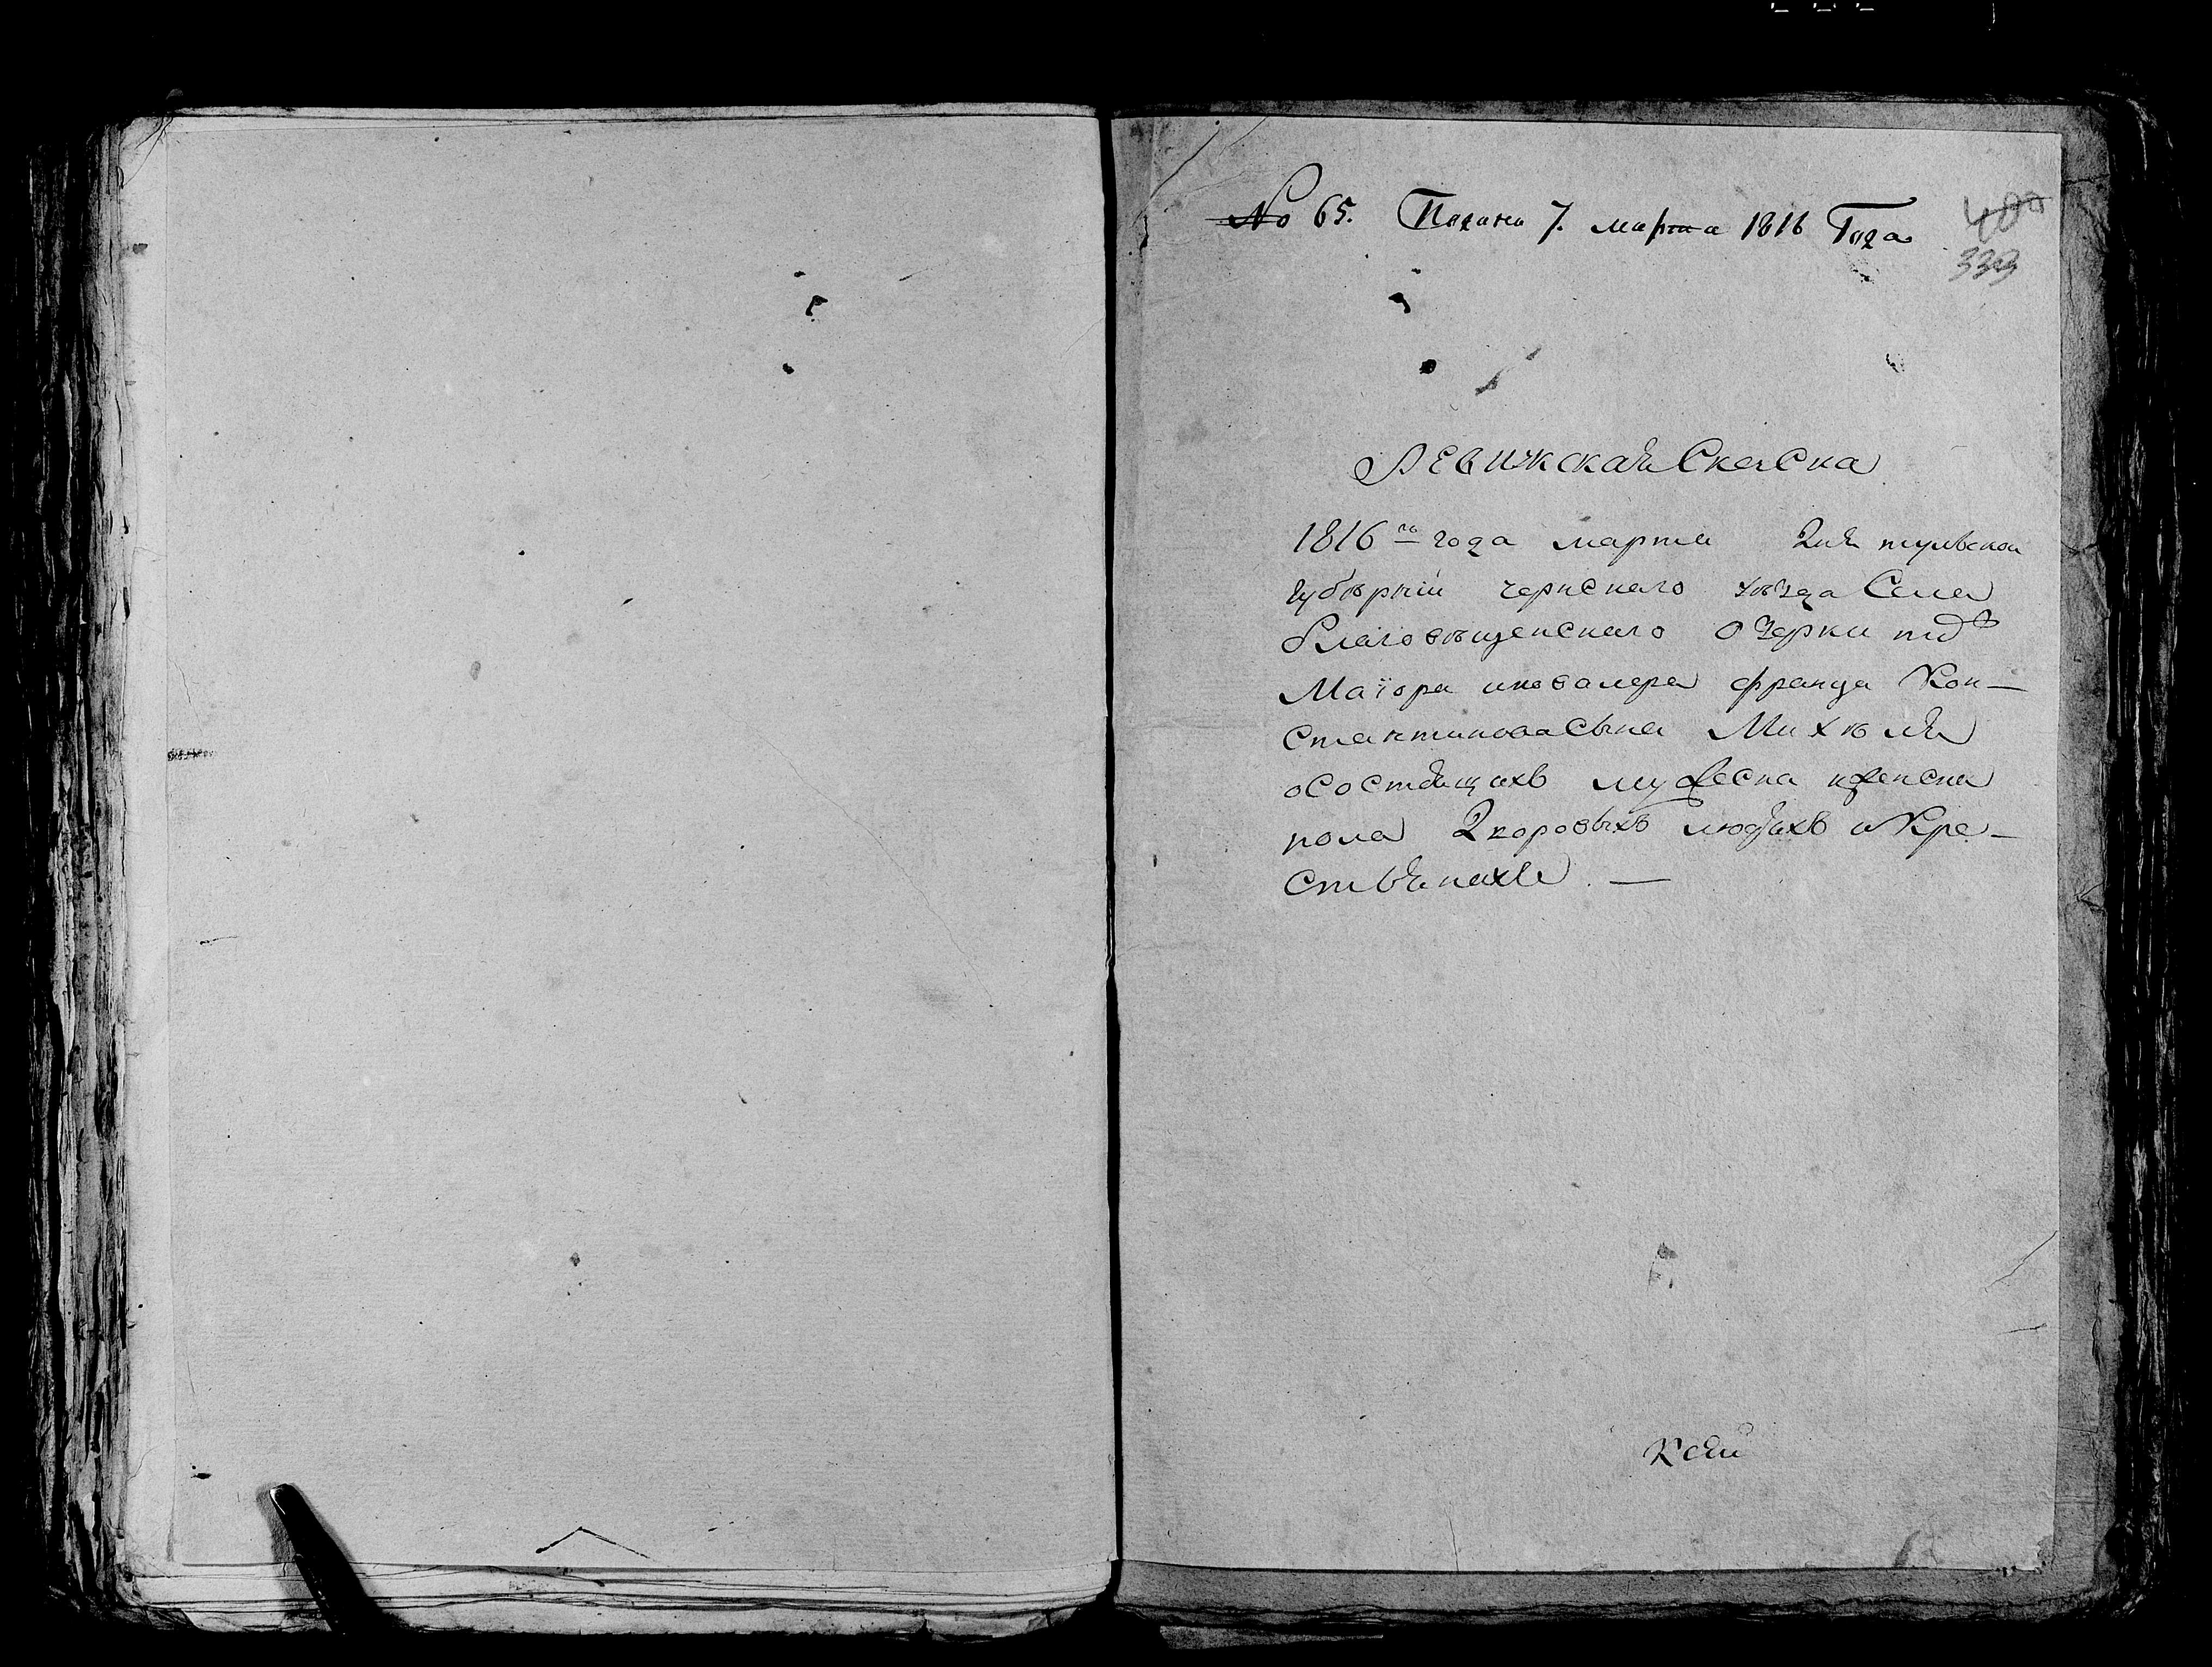 № 65. Подана 7. марта 1816 Года
400
333
Ревижская Скаска
1816го года марта дня тульской
губѣрніи чернскаго уѣзда Села
благовѣщенскаго
Маіора икавалера франца Кон-
стантинова сына Михѣля
осостоящихъ мужеска иженска
пола Дворовыхъ людяхъ и Кре-
стьянахъ. —